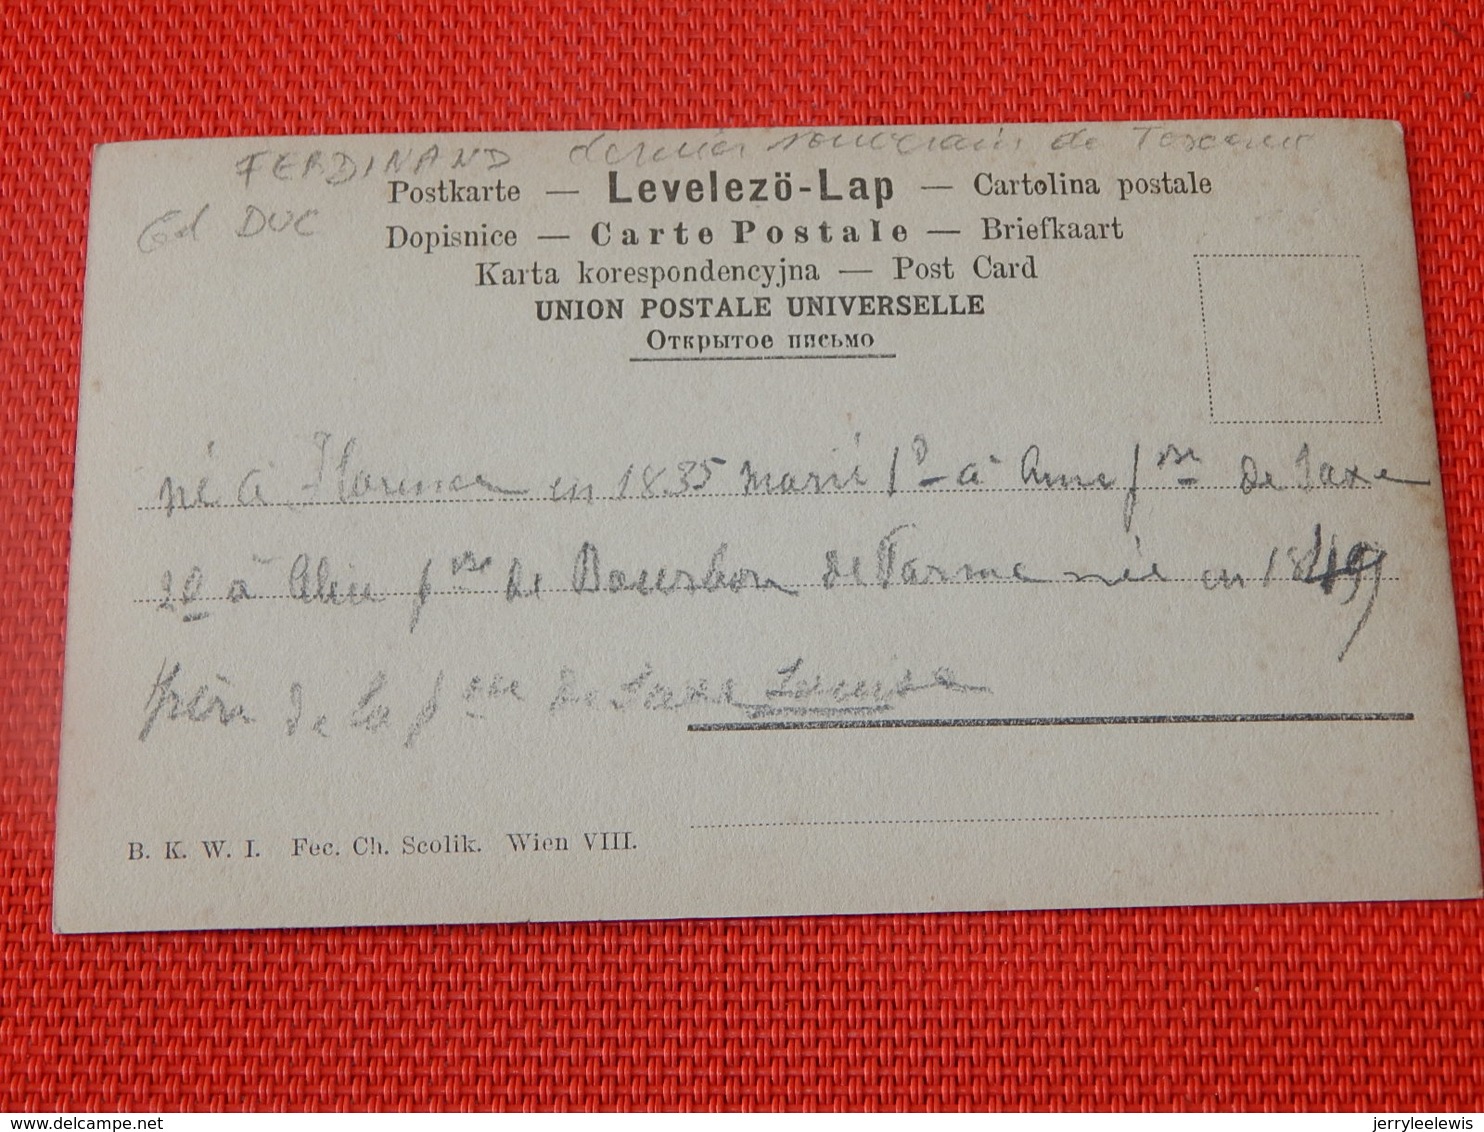 FERDINAND dernier souverain de Toscane
Gd DUC
Postkarte — Levelezö-Lap — Cartolina postale
Dopisnice — Carte Postale — Briefkaart
Karta korespondencyjna — Post Card
UNION POSTALE UNIVERSELLE
Открытое письмо
né à Florence en 1835 marié 1º à Anne psse de Saxe
2º à Alice psse de Bourbon de Parme née en 1849
père de la psse de Saxe Louise
B. K. W. I. Fec. Ch. Scolik. Wien VIII.
www.delcampe.net
jerryleelewis